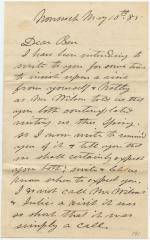 May 10th 85
Dear Ben
I have been intending to
write to you for some time
to insist upon a visit
from yourself & Hetty
as Mr Wilson told us that
you both contemplated
visiting us this Spring.
so I now write to remind
you of it & tell you that
we shall certainly expect
you both; write & let us
know when to expect you.
I not call Mr Wilson's
& Julie a visit it was
so short that it was
simply a call.